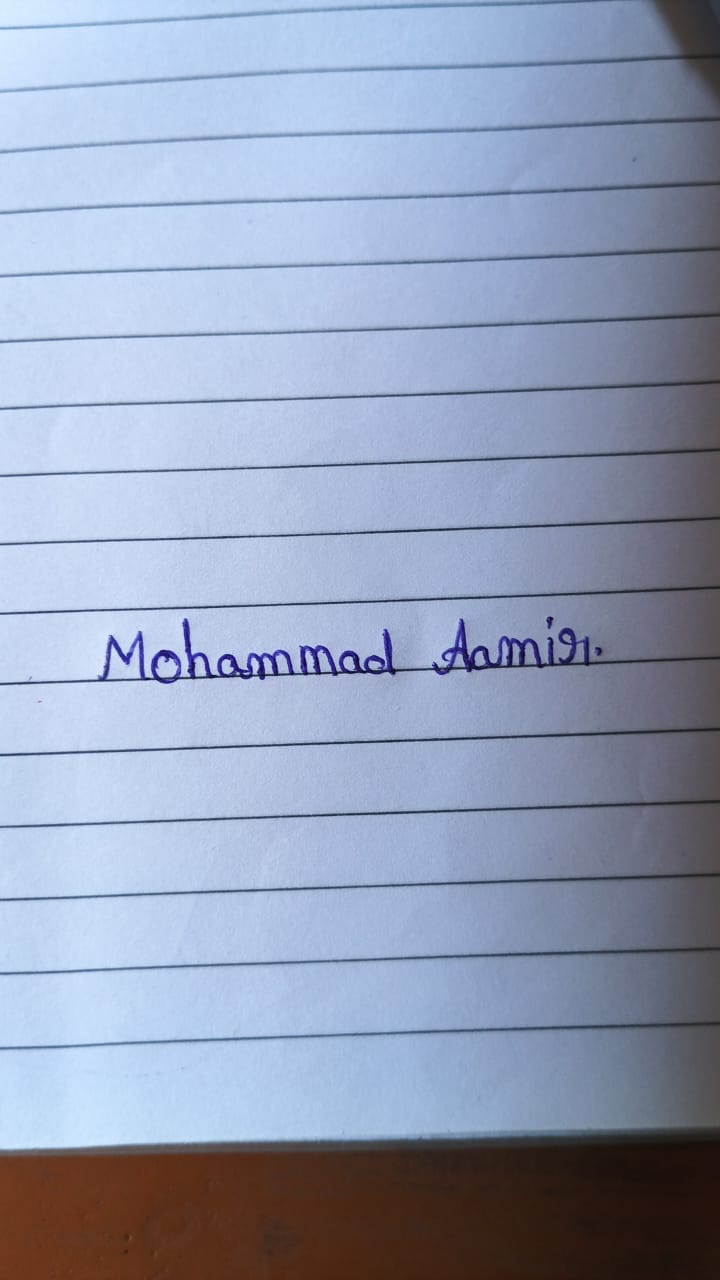 Mohammad Aamir.